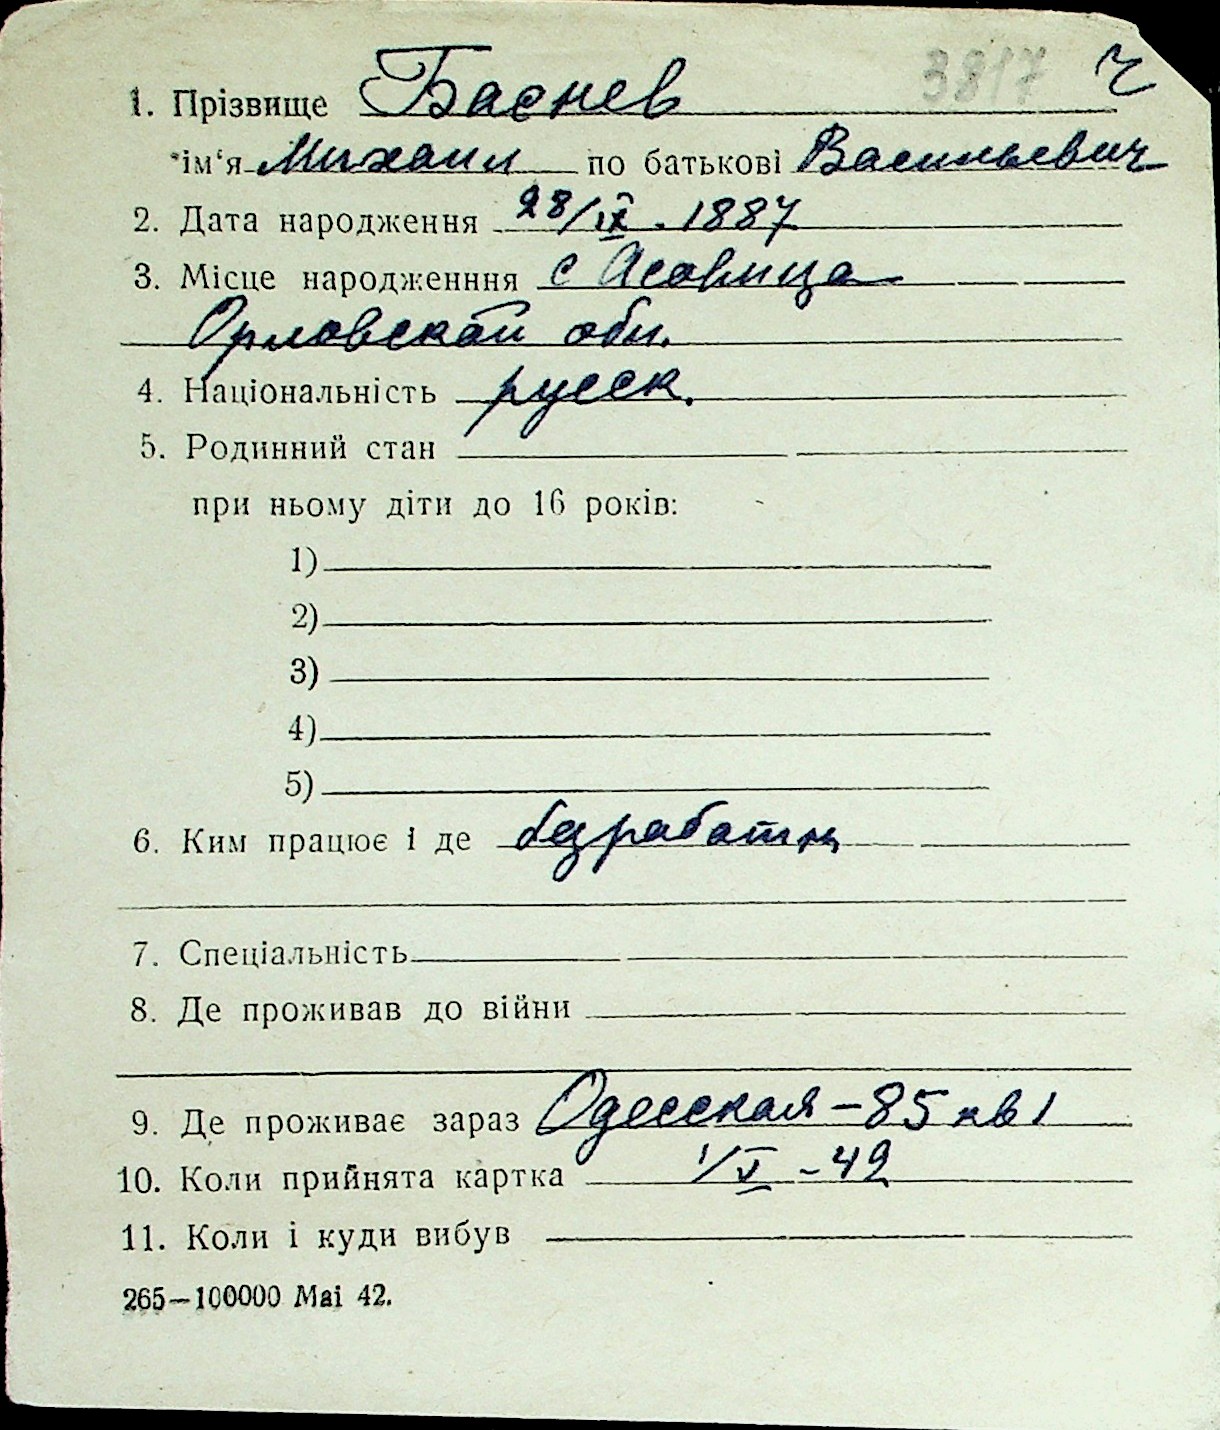 3817 ч
1. Прізвище Баснев
ім‘я Михаил по батькові Васильевич
2. Дата народження 28/IX - 1887
3. Місце народженння с Асовица
Орловской обл.
4. Національність русск.
5. Родинний стан
при ньому діти до 16 років:
1)
2)
3)
4)
5)
6. Ким працює і де безработн
7. Спеціальність
8. Де проживав до війни
9. Де проживає зараз Одесская - 85 кв 1
10. Коли прийнята картка 1/V - 42
11. Коли і куди вибув
265—100000 Mai 42.